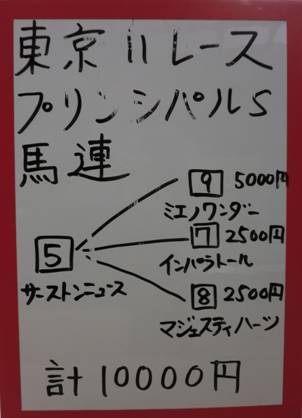 東京11レース
プリンシパルS
馬連
9 5000円
ミエノワンダー
7 2500円
5
インパラトール
サニストンニュース
8 2500円
マジェスティハーツ
計10000円